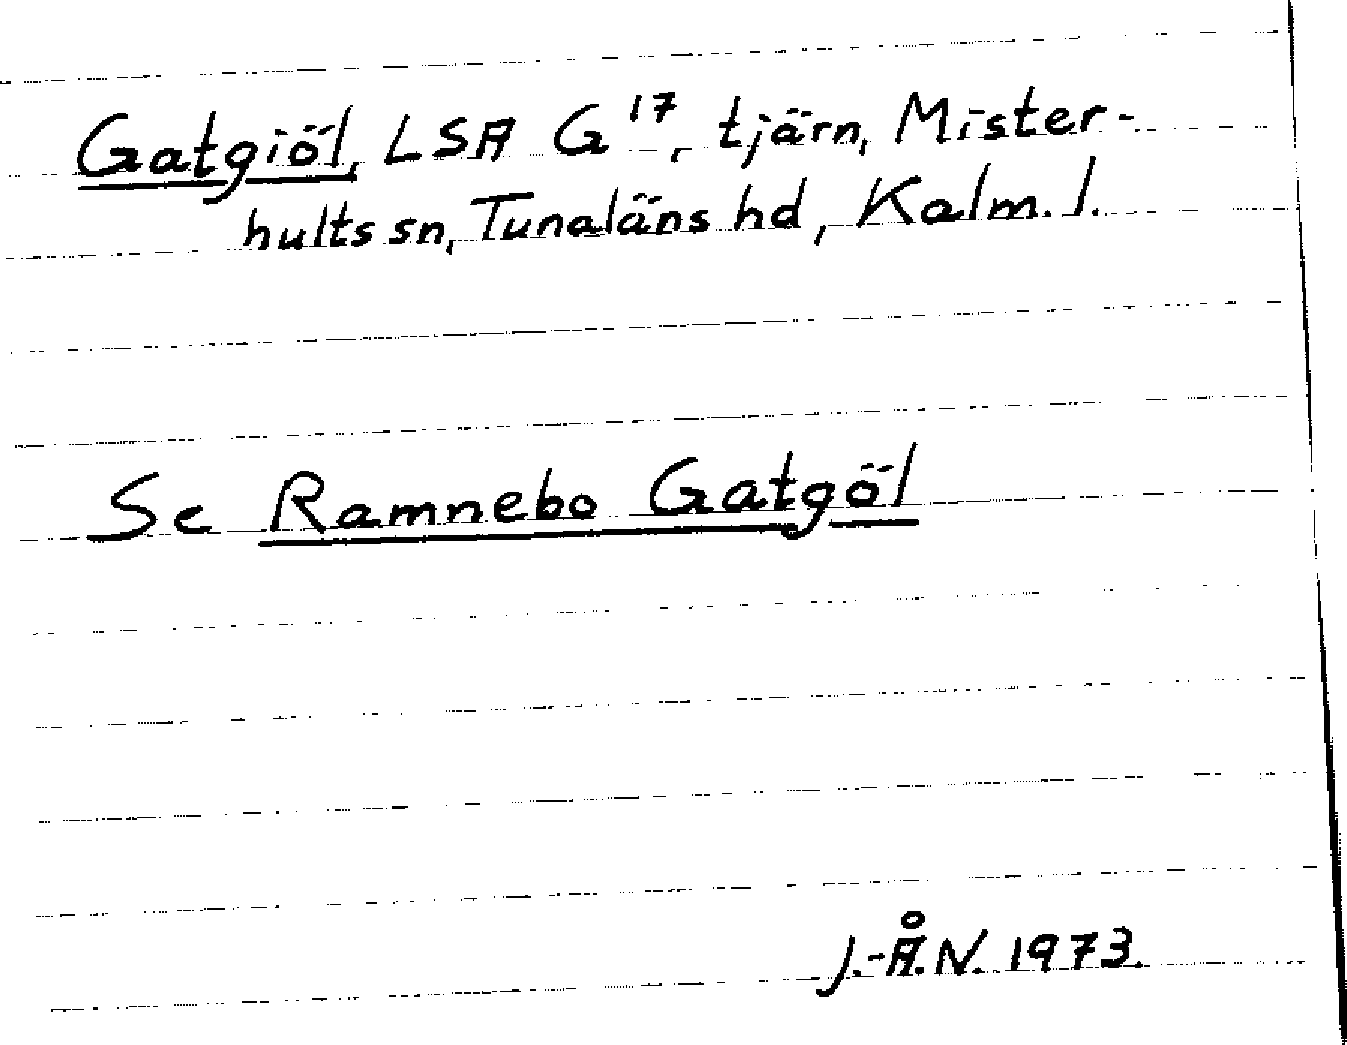 Gatgiöl, LSA G 17, tjärn, Mister-
hults sn, Tunaläns hd, Kalm. l.
Se Ramnebo Gatgöl
J.-Å.N. 1973.